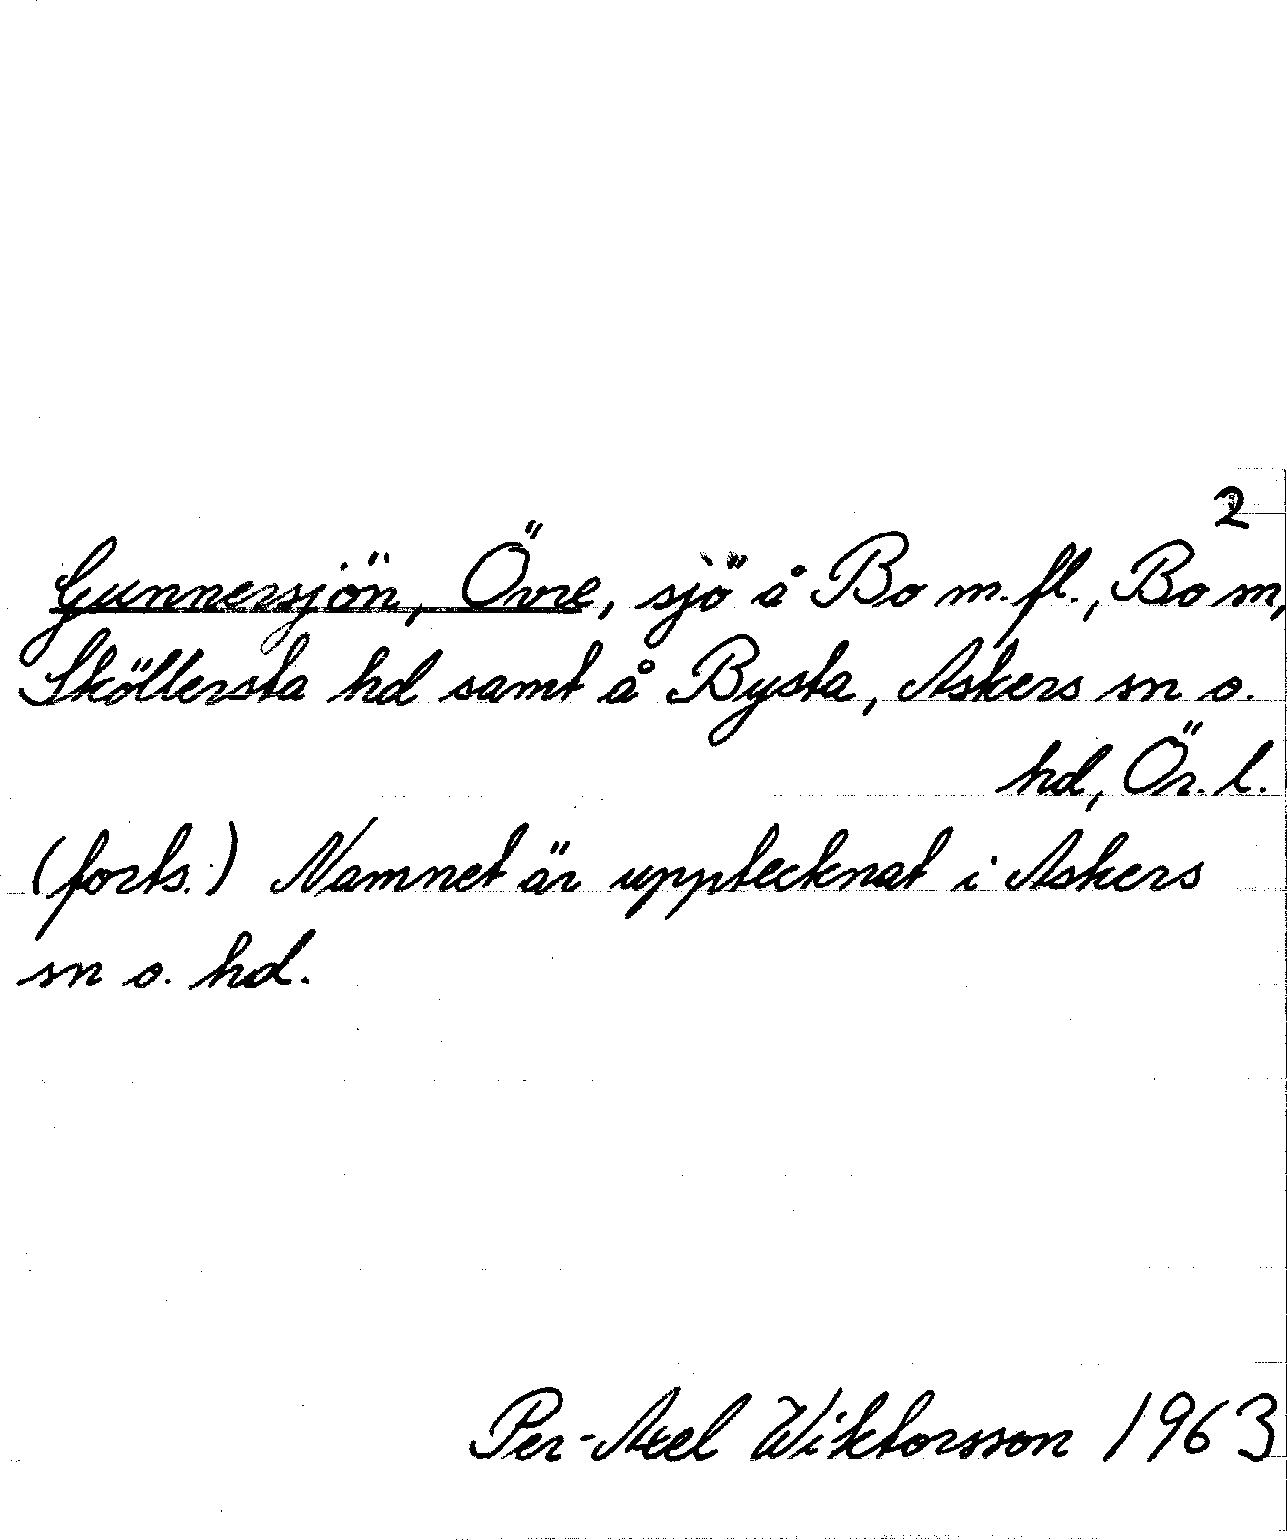 2
Gunnersjön, Övre, sjö å Bo m.fl., Bo sn,
Sköllersta hd samt å Bysta, Askers sn o.
hd, Ör. l.
(forts.) Namnet är upptecknat i Askers
sn o. hd.
Per-Axel Wiktorsson 1963